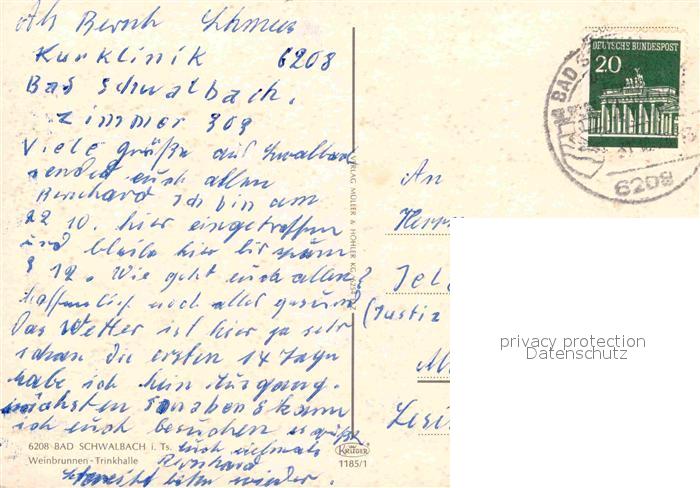 Kurklinik 6208
Bad Schwalbach.
Zimmer 303
Viele grüße auf Swalbad
sendet euch allen
Bernhard Ich bin am
22 10. hier eingetroffen
und bleibe hier bis zum
3 12. Wie geht euch allen?
hoffentlich noch alles gesund
Das Wetter ist hier ja sehr
schön Die ersten 14 Tage
habe ich kein Ausgang.
nächsten kann
ich euch besuchen es grüßt
euch vielmals
Bernhard
bitte wieder.
6208 BAD SCHWALBACH i. Ts.
Weinbrunnen - Trinkhalle
KRÜGER
1185/1
VERLAG MÜLLER & HÖHLER KG,
DEUTSCHE BUNDESPOST
20
BAD
6208
An
Herrn
(Justiz
privacy protection
Datenschutz